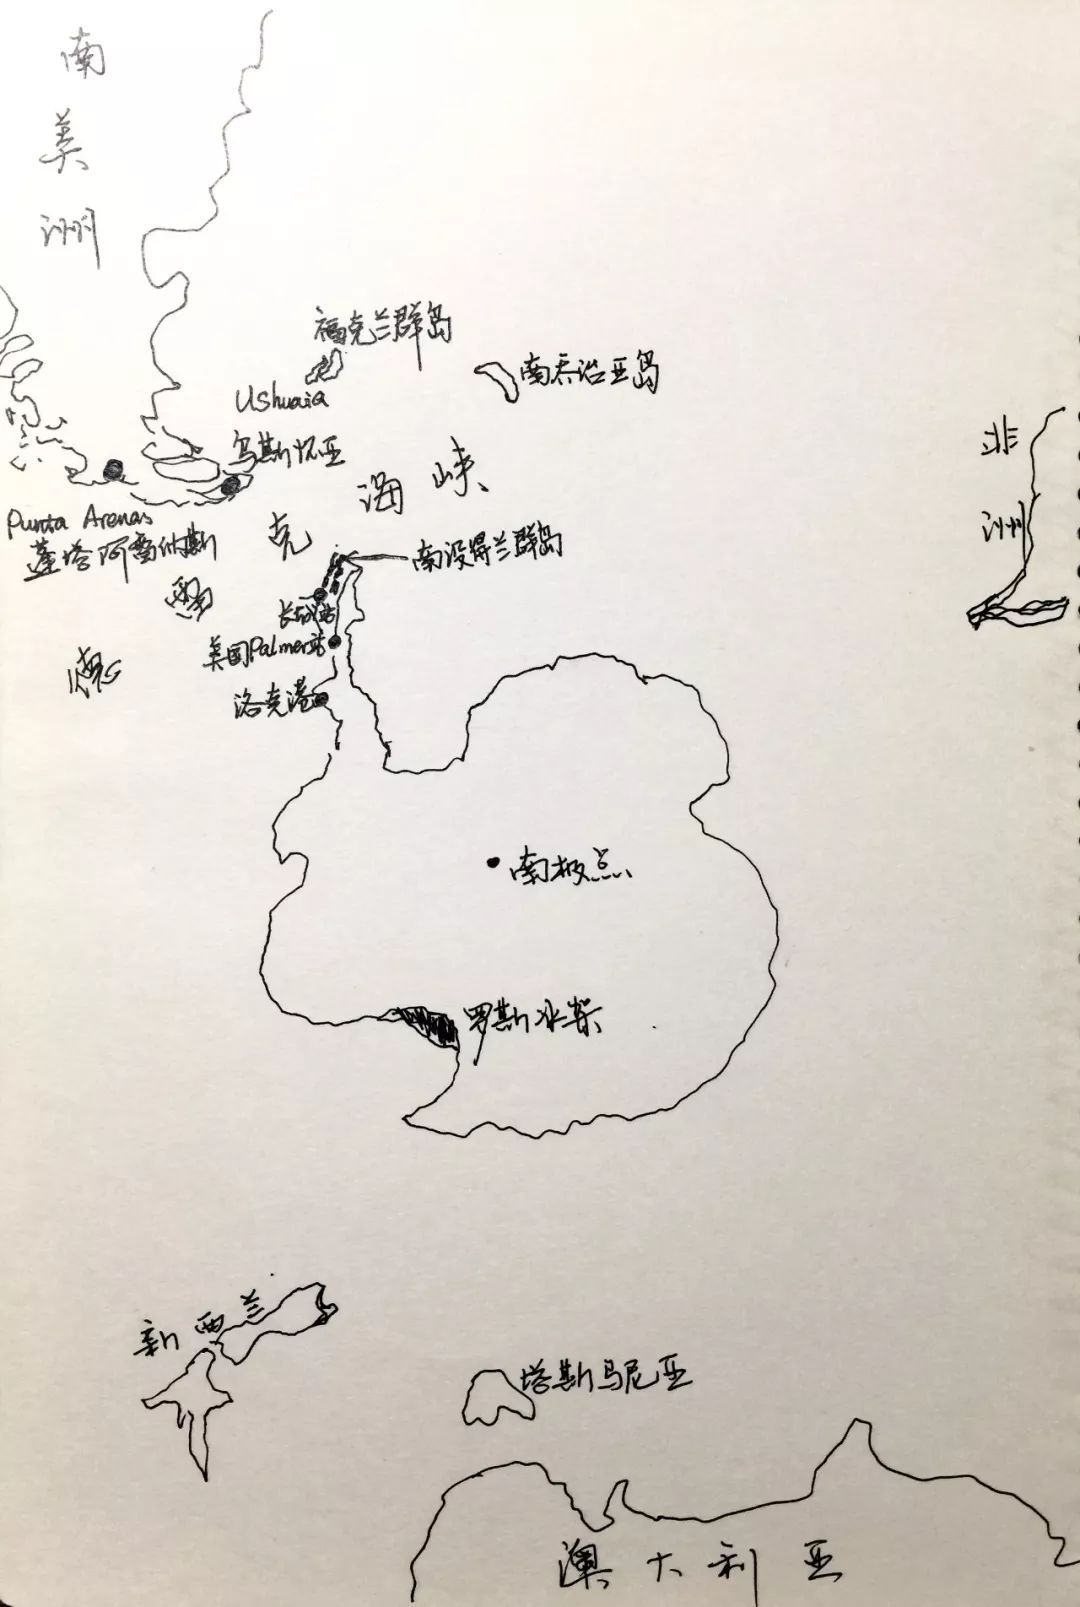 南美洲
福克兰群岛
南乔治亚岛
Ushuaia
乌斯怀亚
Punta Arenas
蓬塔阿雷纳斯
德
克海峡
南设得兰群岛
长城站
美国Palmer站
洛克港
非洲
南极点
罗斯冰架
新西兰
塔斯马尼亚
澳大利亚